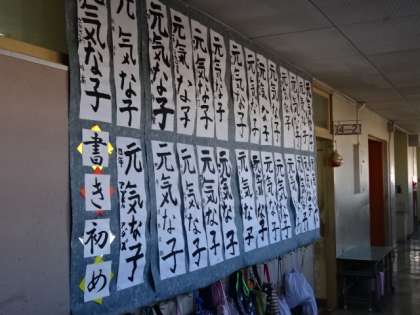 元気な子
元気な子
元気な子
元気な子
元気な子
元気な子
元気な子
元気な子
元気な子
元気な子
元気な子
元気な子
元気な子
書き初め
元気な子
元気な子
元気な子
元気な子
元気な子
元気な子
元気な子
元気な子
元気な子
元気な子
元気な子